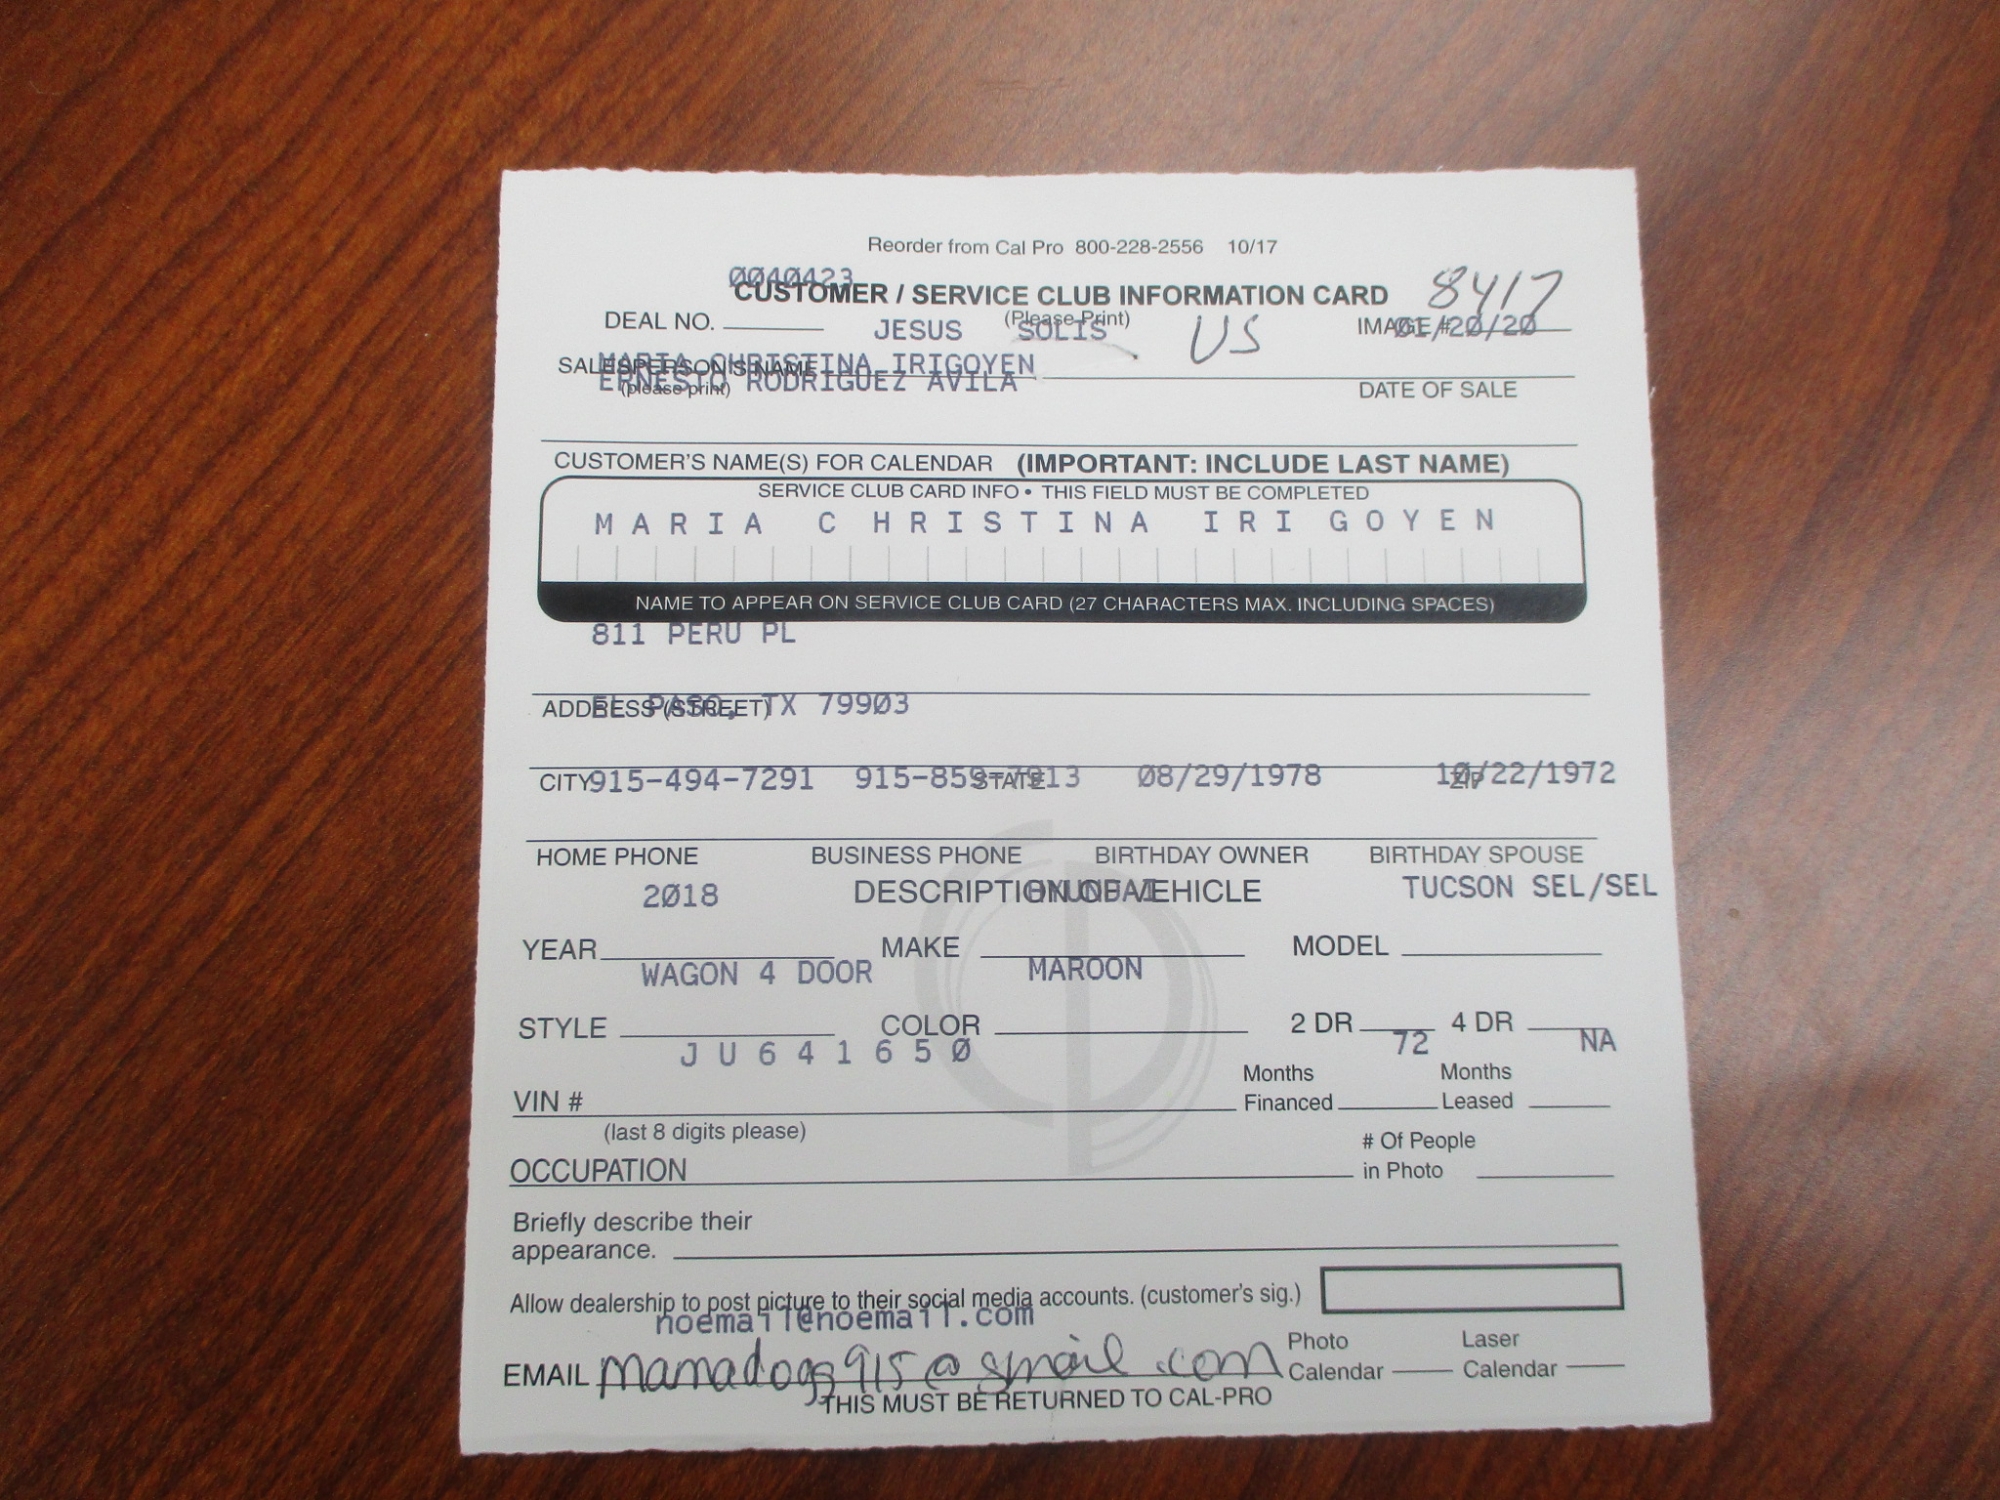 Reorder from Cal Pro 800-228-2556 10/17
0040423
CUSTOMER / SERVICE CLUB INFORMATION CARD 8417
(Please Print)
DEAL NO. JESUS SOLIS US IMAGE # 01/20/20
MARIA CHRISTINA IRIGOYEN
SALESPERSON'S NAME
ERNESTO RODRIGUEZ AVILA
(please print) DATE OF SALE
CUSTOMER'S NAME(S) FOR CALENDAR (IMPORTANT: INCLUDE LAST NAME)
SERVICE CLUB CARD INFO • THIS FIELD MUST BE COMPLETED
MARIA CHRISTINA IRIGOYEN
NAME TO APPEAR ON SERVICE CLUB CARD (27 CHARACTERS MAX. INCLUDING SPACES)
811 PERU PL
EL PASO, TX 79903
ADDRESS (STREET)
915-494-7291 915-859-7913 08/29/1978 10/22/1972
CITY STATE ZIP
HOME PHONE BUSINESS PHONE BIRTHDAY OWNER BIRTHDAY SPOUSE
2018 HYUNDAI TUCSON SEL/SEL
DESCRIPTION OF VEHICLE
YEAR MAKE MODEL
WAGON 4 DOOR MAROON
STYLE COLOR 2 DR 4 DR
JU641650 72 NA
VIN # Months Financed Months Leased
(last 8 digits please)
OCCUPATION # Of People in Photo
Briefly describe their
appearance.
Allow dealership to post picture to their social media accounts. (customer's sig.)
noemail@noemail.com
EMAIL mamadogg915@gmail.com Photo Calendar Laser Calendar
THIS MUST BE RETURNED TO CAL-PRO